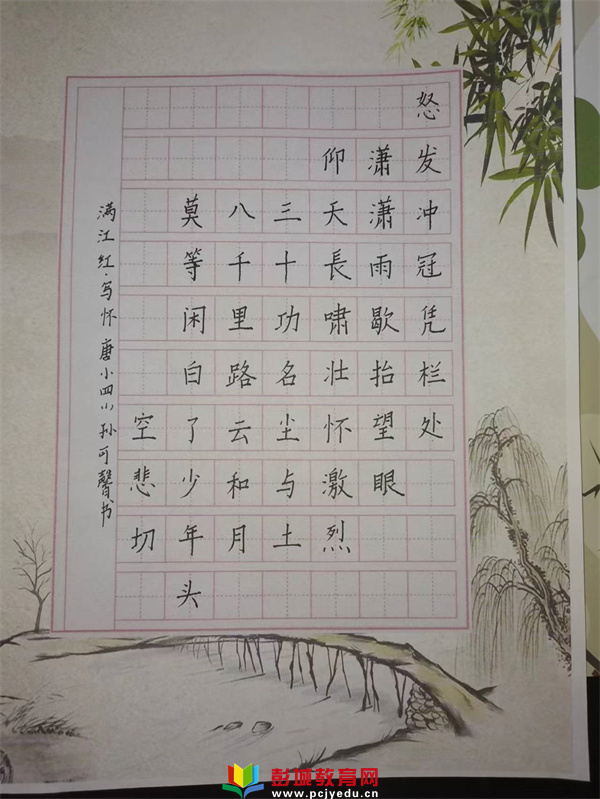 怒发冲冠凭栏处
潇潇雨歇抬望眼
仰天長啸壮怀激烈
三十功名尘与土
八千里路云和月
莫等闲白了少年头
空悲切
满江红·写怀 唐小四(1)孙可馨书
彭城教育网
www.pcjyedu.cn